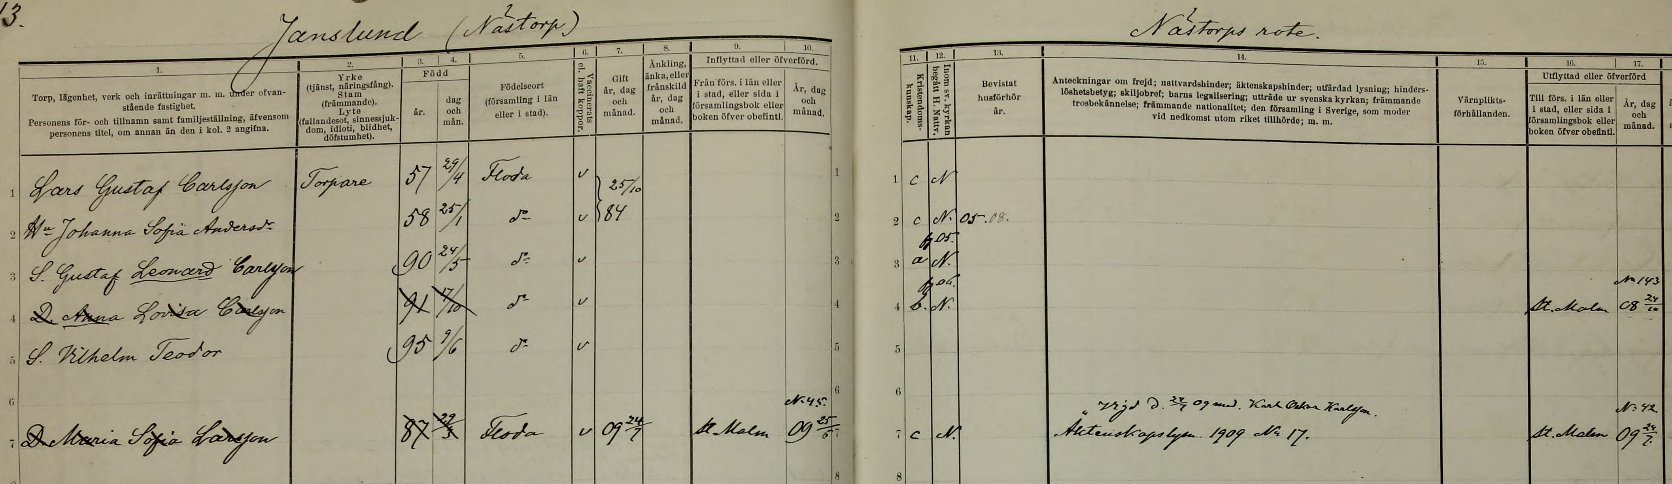 13.
Janslund (Nästorp)
Nästorps rote.
1.
2.
3.
4.
5.
6.
7.
8.
9.
10.
11.
12.
13.
14.
15.
16.
17.
Torp, lägenhet, verk och inrättningar m. m. under ofvan-
stående fastighet.
Personens för- och tillnamn samt familjeställning, äfvensom
personens titel, om annan än den i kol. 2 angifna.
Yrke
(tjänst, näringsfång).
Stam
(främmande).
Lyte
(fallandesot, sinnessjuk-
dom, idioti, blidhet,
döfstumhet).
Född
år.
dag
och
mån.
Födelseort
(församling i län
eller i stad).
Vaccinerats
el. haft koppor.
Gift
år, dag
och
månad.
Änkling,
änka, eller
frånskild
år, dag
och
månad.
Inflyttad eller öfverförd.
Från förs. i län eller
i stad, eller sida i
församlingsbok eller
boken öfver obefintl.
År, dag
och
månad.
Kristendoms-
kunskap.
Inom sv. kyrkan
begått H. Nattv.
Bevistat
husförhör
år.
Anteckningar om frejd; nattvardshinder; äktenskapshinder; utfärdad lysning; hinders-
löshetsbetyg; skiljobref; barns legalisering; utträde ur svenska kyrkan; främmande
trosbekännelse; främmande nationalitet; den församling i Sverige, som moder
vid nedkomst utom riket tillhörde; m. m.
Värnplikts-
förhållanden.
Utflyttad eller öfverförd
Till förs. i län eller
i stad, eller sida i
församlingsbok eller
boken öfver obefintl.
År, dag
och
månad.
1 Lars Gustaf Carlsson Torpare 57 29/4 Floda v 25/10 84 1 1 c N
2 Hu Johanna Sofia Andersdr 58 25/1 do v 2 2 c N. 05. 08.
3 S. Gustaf Leonard Carlsson 90 24/5 do v 3 3 a 05. N.
4 D. Anna Lovisa Carlsson 91 7/10 do v 4 4 b. 06. N. St. Malm No 143 08 24/10
5 S. Vilhelm Teodor 95 9/6 do v 5 5
6 6 6
7 D. Maria Sofia Larsson 87 29/3 Floda v 09 24/7 St. Malm No 45. 09 25/6 7 7 c N. Vigd d. 24/7 09 med. Karl Oskar Karlsson.
Äktenskapslysn. 1909 No 17. St. Malm No 42 09 24/7
8 8